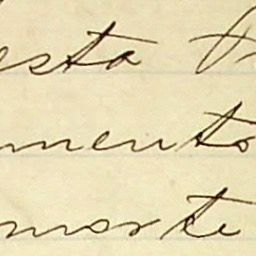 esta
mento
morte